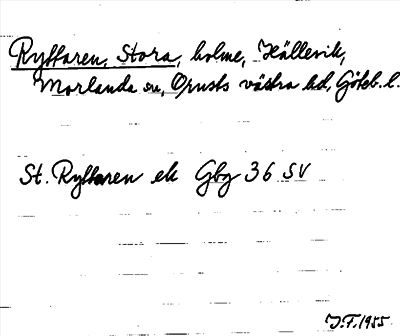 Ryttaren, Stora, holme, Hällevik,
Morlanda sn, Orusts västra hd, Göteb. l.
St. Ryttaren ek Gbg 36 SV
J.F. 1955